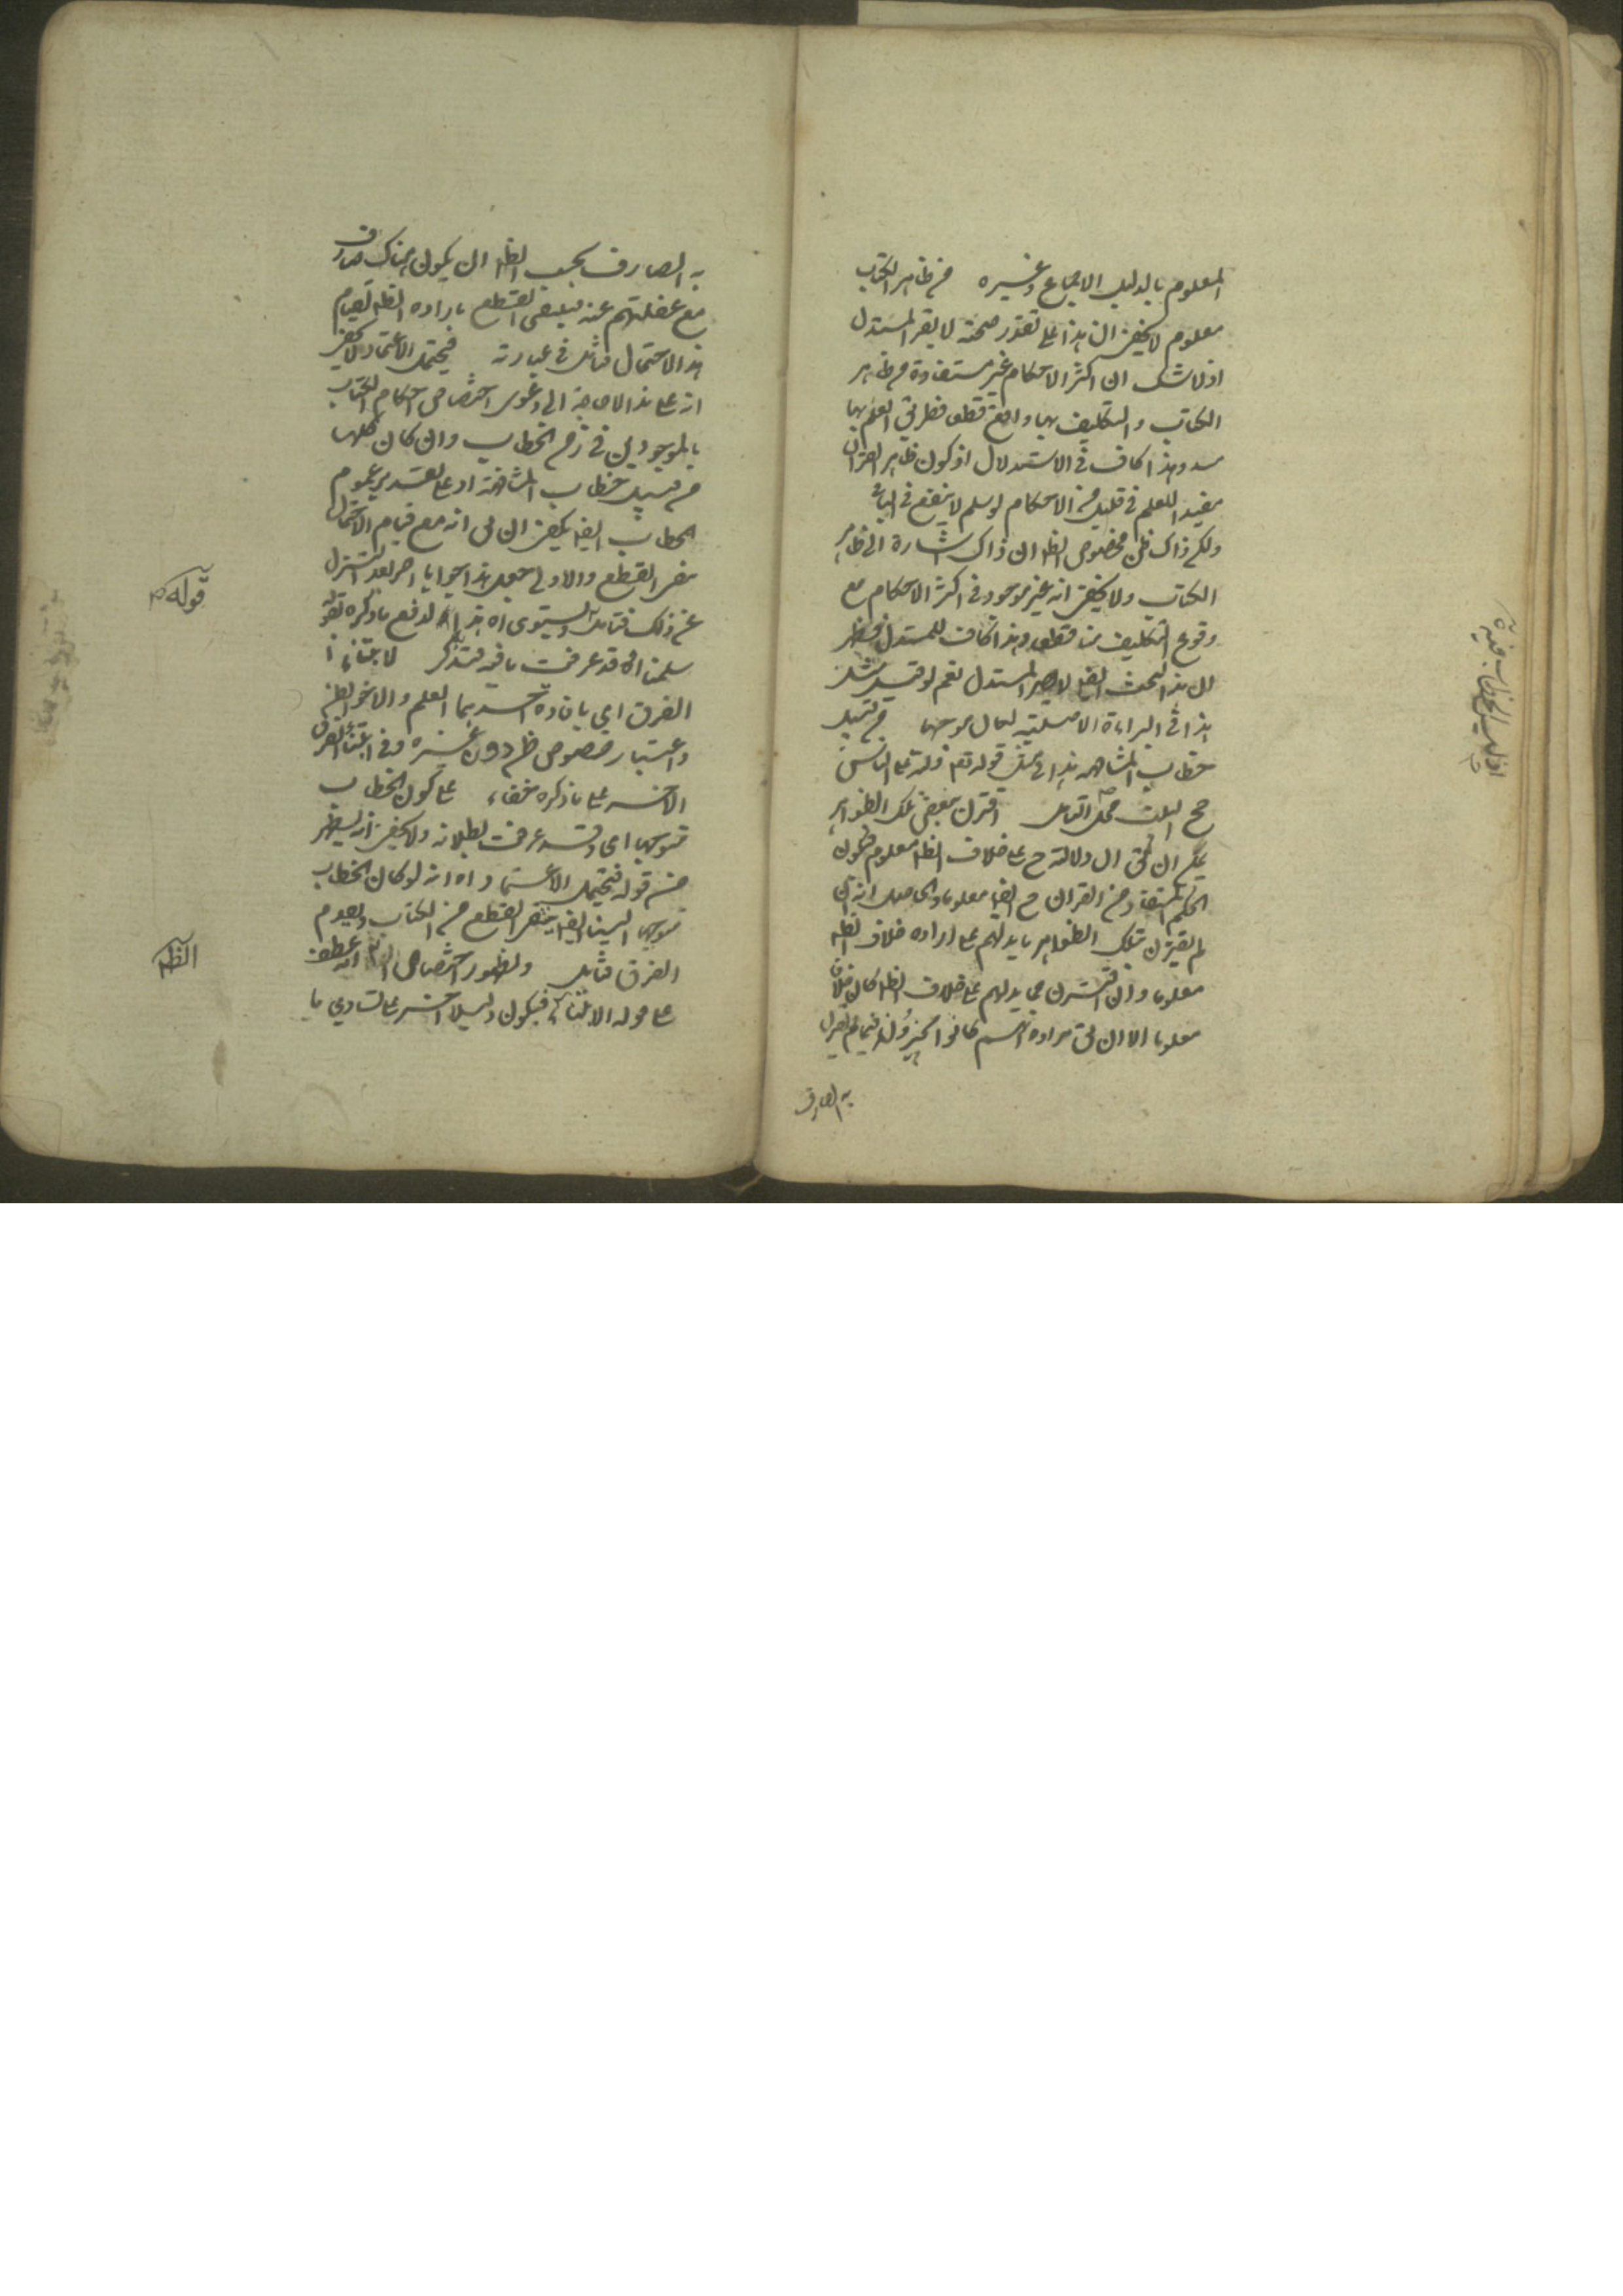 المعلوم بالدليل الاجماع وغيره من ظاهر الكتاب
معلوم لا يخفى ان هذا على تقدير صحته لا يضر المستدل
اذ لا شك ان اكثر الاحكام غير مستفادة من ظاهر
الكتاب والتكليف بها واقع قطعا فطريق العلم بها
مسدود هذا كاف في الاستدلال اذ كون ظاهر القرآن
مفيدا للعلم في قليل من الاحكام لو سلم لا ينفع في الباقي
ولكن ذاك ظن مخصوص الظ ان ذاك اشارة الى ظاهر
الكتاب ولا يخفى انه غير موجود في اكثر الاحكام مع
وقوع التكليف بها قطعا وهذا كاف للمستدل فظهر
ان هذا البحث ايضا لا يضر المستدل نعم لو قيل مثل
هذا في البراءة الاصلية لكان موجها من قبيل
خطاب المشافهة قوله تع ولله على الناس
حج البيت محل التامل اقترن ببعض تلك الظواهر
يمكن ان يق ان دلالته ح على خلاف الظ معلوم فيكون
الحكم المستفاد من القرآن ح ايضا معلوما والحاصل انه ان
لم يقترن بتلك الظواهر ما يدلهم على ارادة خلاف الظ
معلوما وان اقترن بها ما يدلهم على خلاف الظ كان خلافه
معلوما الا ان يق مراده انهم كانوا
به الصارف
به الصارف بحسب الظ ان يكون هناك صارف
مع غفلتهم عنه فينتفى القطع بارادة الظ لقيام
هذا الاحتمال فتامل في عبارته فيحتمل الاعتماد لا يخفى
انه على هذا لا حاجة الى دعوى اختصاص احكام الكتاب
بالموجودين في زمن الخطاب وان كان كلها
من قبيل خطاب المشافهة اذ على تقدير عموم
الخطاب ايضا يكفى ان يق انه مع قيام الاحتمال
ينفى القطع والاولى جعل هذا جوابا اخر بعد التنزل
عن ذلك فتامل ويستوى اه هذا لدفع ما ذكره بقوله
سلمنا اه قد عرفت ما فيه فتذكر لابتناء
الفرق اى بافادة احدهما العلم والاخر الظن
واعتبار خصوص ظن دون غيره وفي ابتناء الفرق
الاخير على ما ذكره خفاء على كون الخطاب
متوجها اى وقد عرفت بطلانه ولا يخفى انه يظهر
من قوله فيحتمل الاعتماد اه انه لو كان الخطاب
متوجها الينا ايضا ينتفى القطع من الكتاب ويعدم
الفرق فتامل ولظهور اختصاص انه عطف
على قوله لابتناء فيكون دليلا اخر على تساوي ما
قوله
الظ